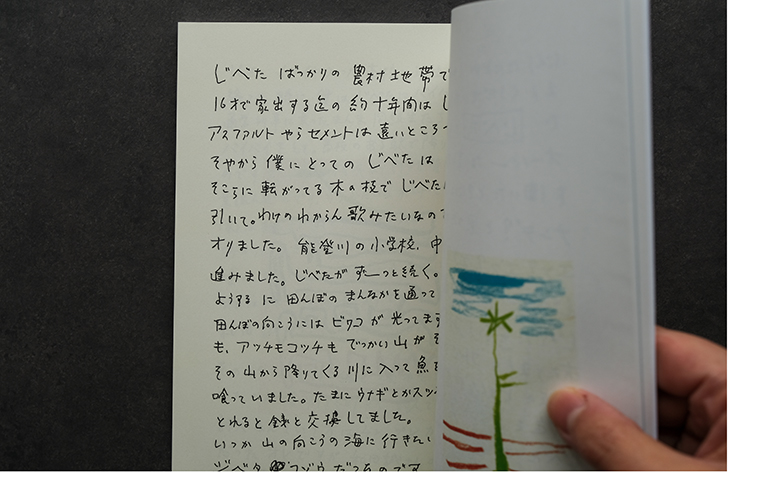 じべた ばっかりの 農村地帯で
16才で家出する迄の 約十年間は じ
アスファルト やら セメントは 遠いところ
そやから 僕に とっての じべたは
そこらに 転がってる 木の枝で じべたに
引いて。わけのわからん 歌みたいなの
オリました。 能登川の 小学校、中
進みました。じべたが ずーっと続く。
ようするに 田んぼの まんなかを 通って
田んぼの向こうには ビワコが 光ってます
も、アッチモコッチも でっかい 山が そ
その 山から 降りてくる 川に 入って 魚を
喰っていました。たまに ウナギとかスッ
とれると 銭と 交換してました。
いつか 山の向こうの 海に 行きたい
ジベタ